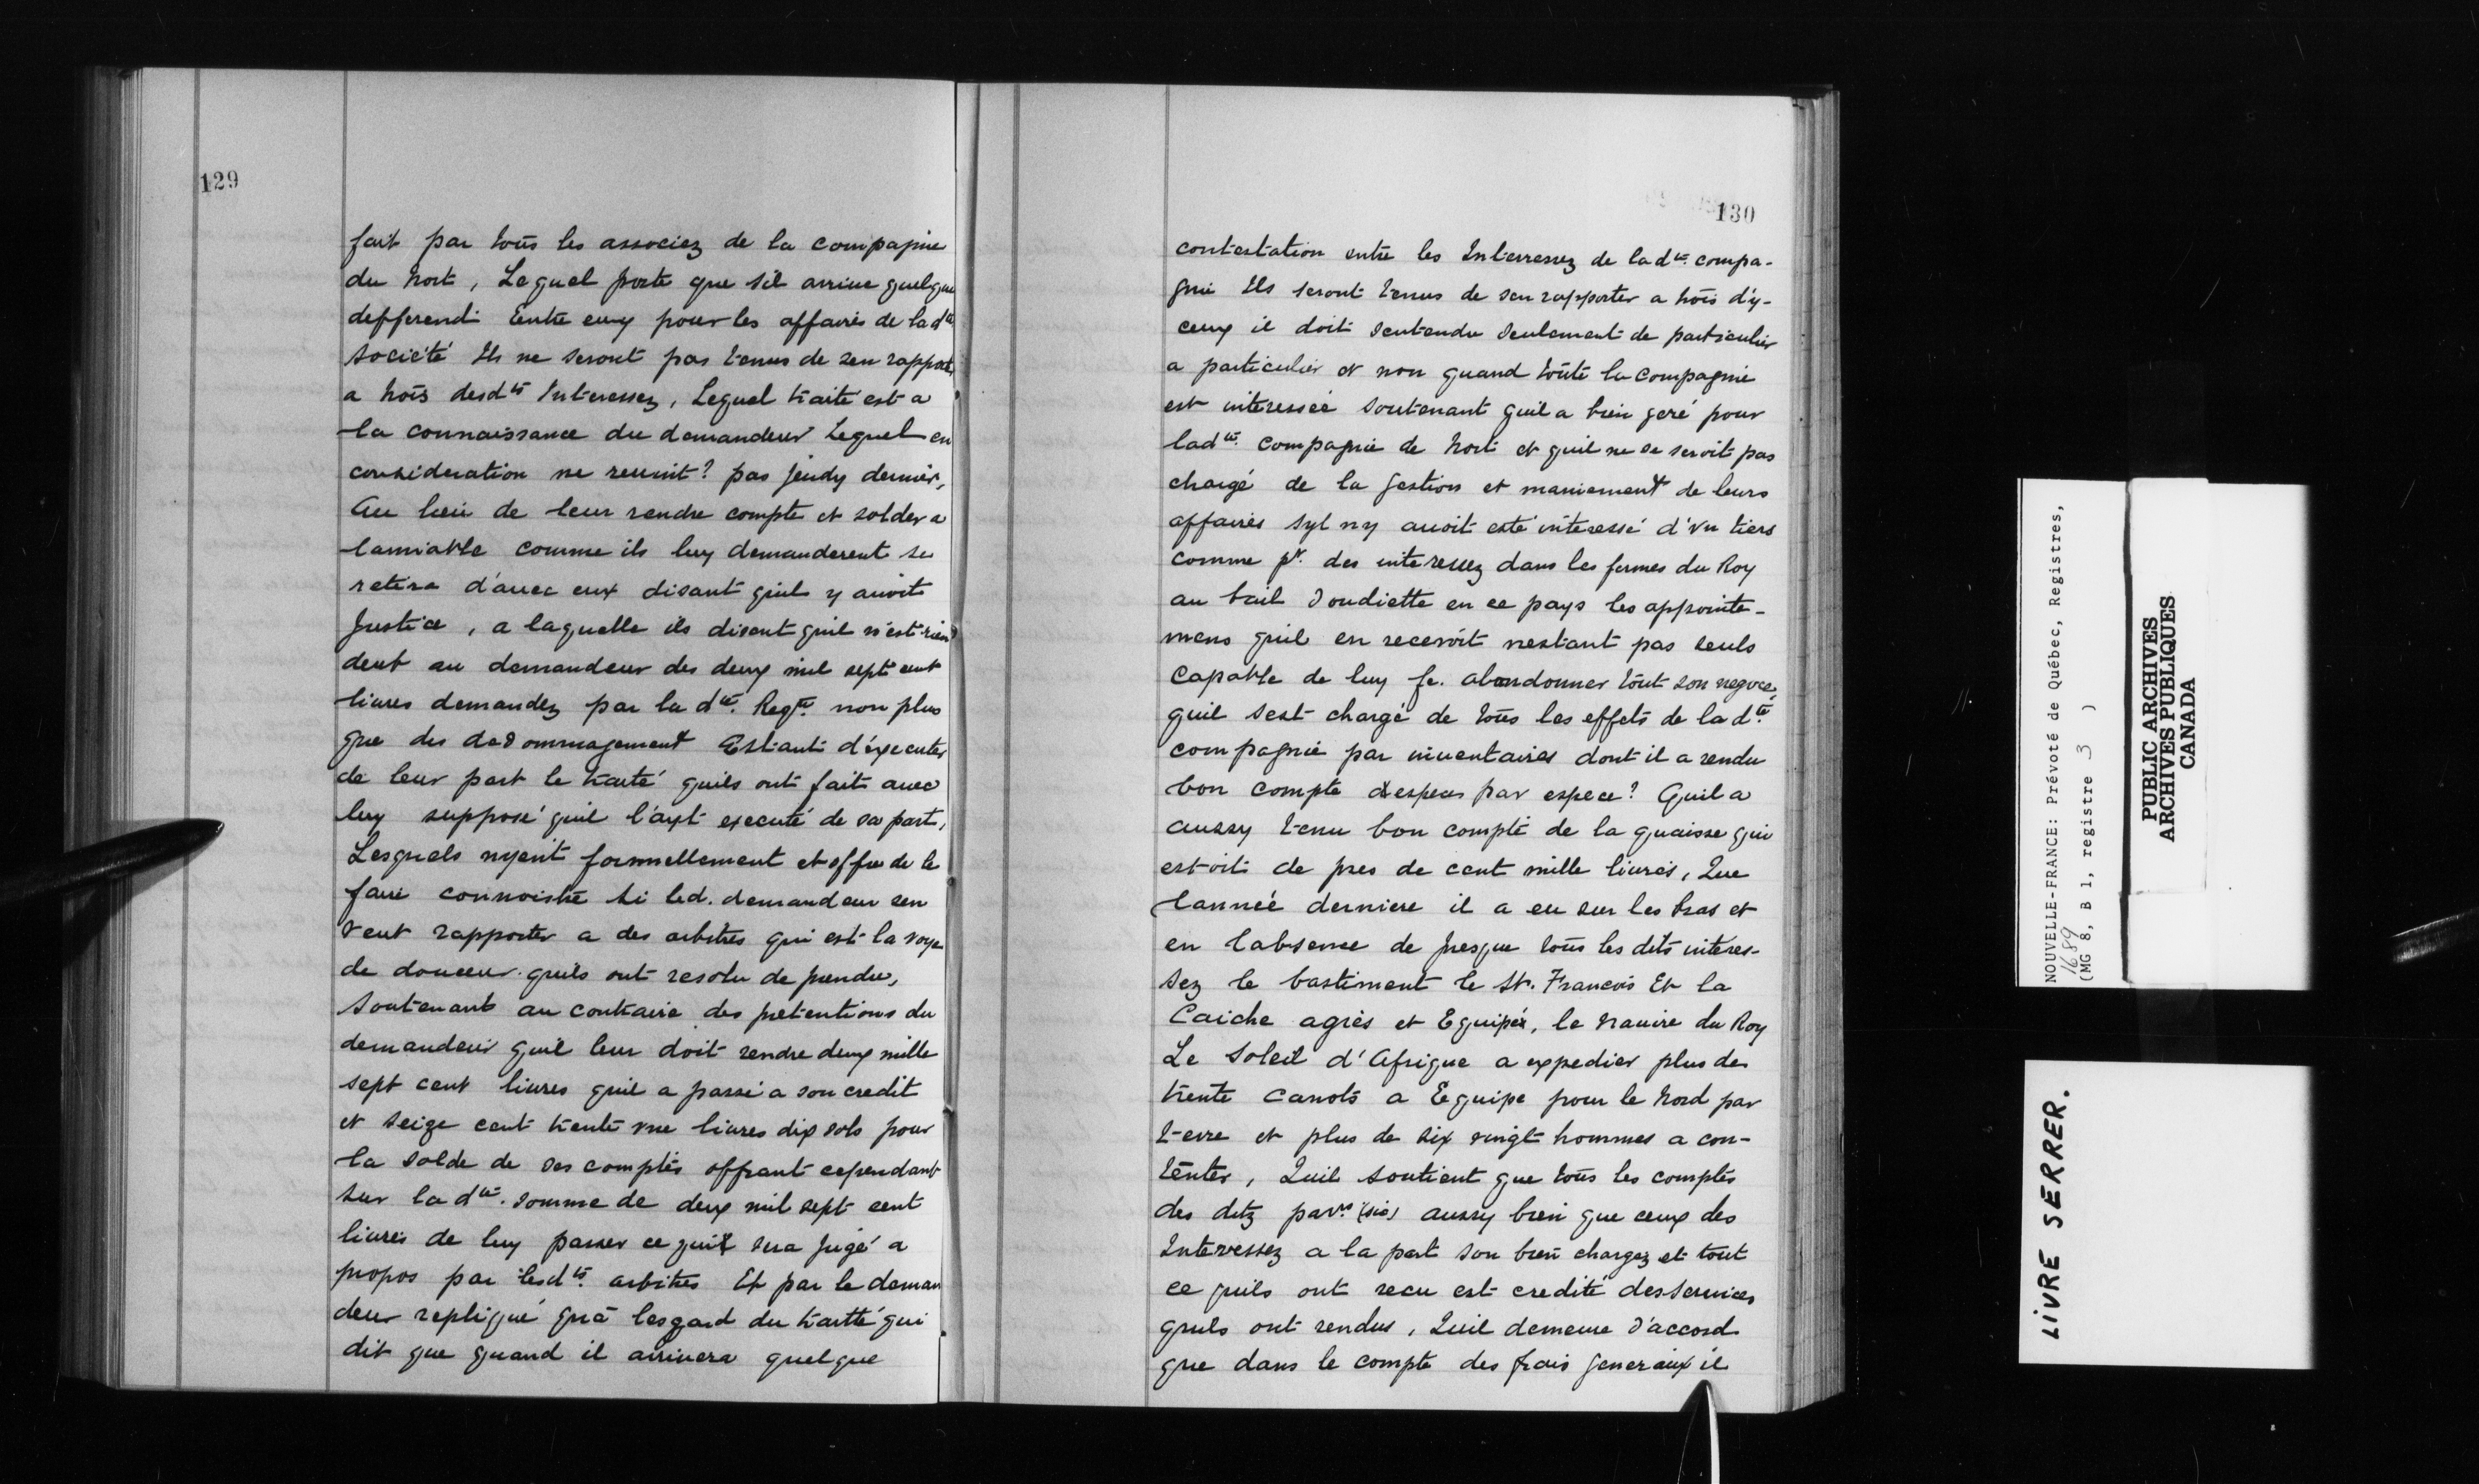 129
fait par tous les associez de la compagnie
du Nort, Lequel porte que s'il arrive quelque
defferend Entre eux pour les affaires de lad.te
société Ils ne seront pas tenus de sen rapporter
a trois desd.ts Interessez, Lequel traité est a
la connaissance du demandeur Lequel en
consideration ne reunit? pas jeudy dernier,
Au lieu de leur rendre compte et solder a
lamiable comme ils luy demanderent se
retira d'avec eux disant quil y avoit
Justice, a laquelle ils disent quil n'est rien
deub au demandeur des deux mil sept cent
livres demandez par la d.te Reqte. non plus
que des dedommagement Estant d'executer
de leur part le traité quils ont fait avec
luy supposé quil l'ayt executé de sa part,
Lesquels nyent formellement et offre de le
faire connoistre si led. demandeur sen
veut rapporter a des arbitres qui est la voye
de douceur quils ont resolu de prendre,
Soutenant au contraire des pretentions du
demandeur quil leur doit rendre deux mille
sept cent livres quil a passé a son credit
et seize cent trente une livres dix sols pour
la solde de ses comptes offrant cependant
sur la d.te somme de deux mil sept cent
livres de luy passer ce quil sera jugé a
propos par lesd.ts arbitres Et par le deman
deur repliqué qu'a lesgard du traitté qui
dit que quand il arrivera quelque
130
contestation entre les Interressez de lad.te compa-
gnie Ils seront tenus de sen rapporter a trois d'y-
ceux il doit sentendre seulement de particulier
a particulier et non quand toute la compagnie
est interessée soutenant quil a bien geré pour
lad.te compagnie de Nort et quil ne se seroit pas
chargé de la gestion et maniement de leurs
affaires syl ny avoit esté interessé d'un tiers
comme pr. des interessez dans les fermes du Roy
au bail doudiette en ce pays les appointe-
mens quil en recevoit nestant pas seuls
capable de luy fe. abandonner tout son negoce,
quil sest chargé de tous les effets de la d.te
compagnie par inventaires dont il a rendu
bon compte despeces par espece? Quil a
aussy tenu bon compte de la quaisse qui
estoit de pres de cent mille livres, Que
lannée derniere il a eu sur les bras et
en labsence de presque tous les dits interes-
sez le bastiment le St. Francois Et la
Caiche agrès et Equipés, le navire du Roy
Le Soleil d'Afrique a expedier plus de
trente canots a Equipe pour le Nord par
terre et plus de six vingt hommes a con-
tenter, Quil soutient que tous les comptes
des ditz parrs (sic) aussy bien que ceux des
Interressez a la part son bien chargez et tout
ce quils ont recu est credité des services
quils ont rendus, Quil demeure d'accord
que dans le compte des frais generaux il
NOUVELLE-FRANCE: Prévoté de Québec, Registres,
1689
(MG 8, B 1, registre 3 )
PUBLIC ARCHIVES
ARCHIVES PUBLIQUES
CANADA
LIVRE SERRER.